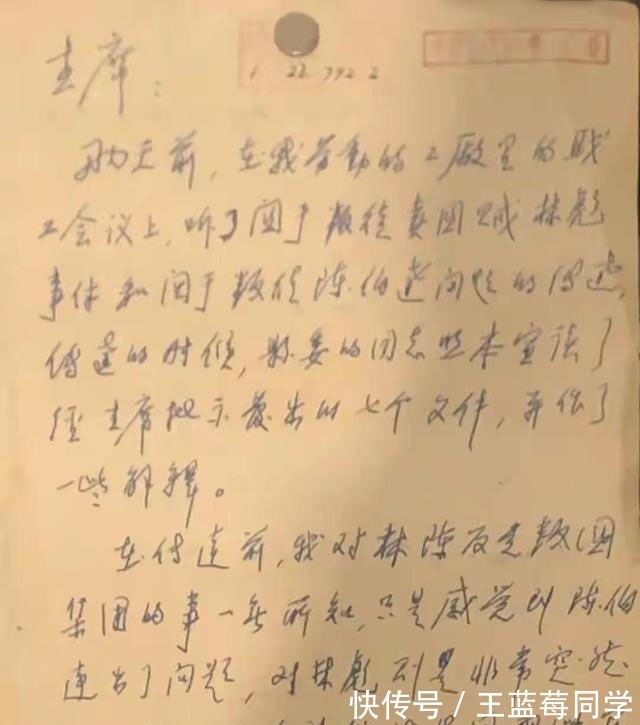 1 22 792 2
主席：
两天前，在我劳动的工厂里的职
工会议上，听了关于叛徒卖国贼林彪
事件和关于叛徒陈伯达问题的传达，
传达的时候，县委的同志照本宣读了
经主席批示发出的七个文件，并作了
一些解释。
在传达前，我对林陈反党叛国
集团的事一无所知，只是感觉到陈伯
达出了问题，对林彪则是非常突然
快传号／王蓝莓同学